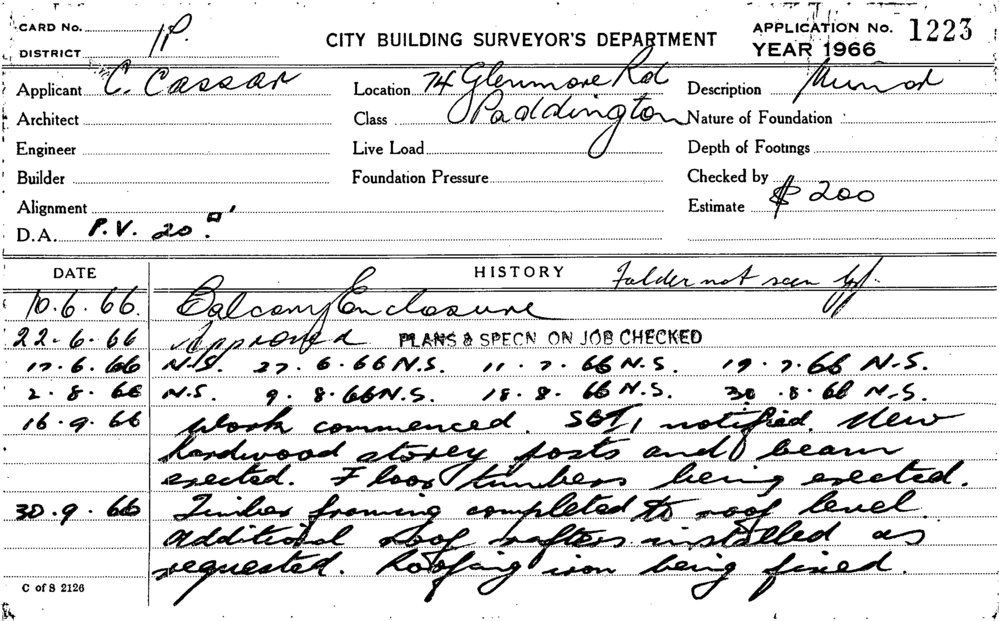 CARD No.
DISTRICT 1P.
CITY BUILDING SURVEYOR'S DEPARTMENT
APPLICATION No. 1223
YEAR 1966
Applicant C. Cassar
Location 74 Glenmore Rd
Paddington
Description Minor
Architect
Class
Nature of Foundation
Engineer
Live Load
Depth of Footings
Builder
Foundation Pressure
Checked by
Alignment
Estimate $200
D.A. P.V. 20
DATE HISTORY Folder not seen
10.6.66. Balcony Enclosure
22.6.66 Approved PLANS & SPECN ON JOB CHECKED
17.6.66 N.S. 27.6.66 N.S. 11.7.66 N.S. 19.7.66 N.S.
2.8.66 N.S. 9.8.66 N.S. 18.8.66 N.S. 30.8.66 N.S.
16.9.66 Work commenced. notified. New
hardwood storey posts and beam
erected. Floor timbers being erected.
30.9.66 Timber framing completed to roof level
additional roof rafters installed as
requested. Roofing iron being fixed.
C of S 2126